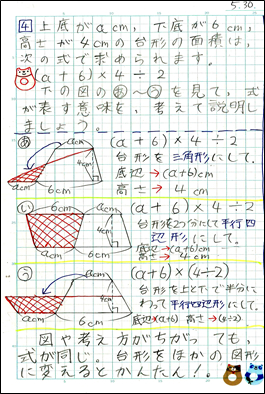 5.30
4 上底がacm，下底が6cm，
高さが4cmの台形の面積は，
次の式で求められます。
(a＋6)×4÷2
下の図のあ〜うを見て，式
が表す意味を，考えて説明し
ましょう。
あ
acm
4cm
acm
6cm
(a＋6)×4÷2
台形を三角形にして。
底辺→(a+6)cm
高さ→4cm
い
6cm
acm
4cm
acm
6cm
(a＋6)×4÷2
台形を2つ分にして平行四
辺形にして。
底辺→(a+6)cm
高さ→4cm
う
acm
4cm
acm
6cm
(a+6)×(4÷2)
台形を上と下で半分に
わって平行四辺形にして。
底辺→(a+6) 高さ→(4÷2)
図や考え方がちがっても，
式が同じ。台形をほかの図形
に変えるとかんたん！。